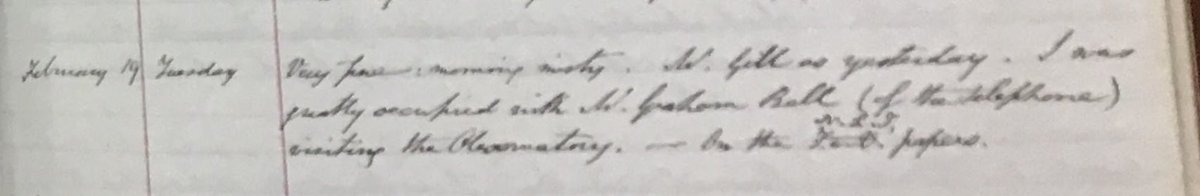 February 19 Tuesday Very fine: morning misty. Mr. Gill as yesterday. I was
greatly occupied with Mr. Graham Bell (of the telephone)
visiting the Observatory. — On the papers.